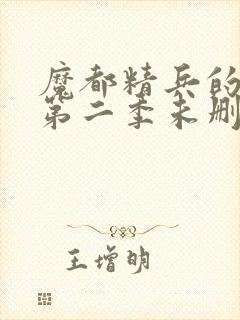 魔都精兵的
第二季未删
王增明